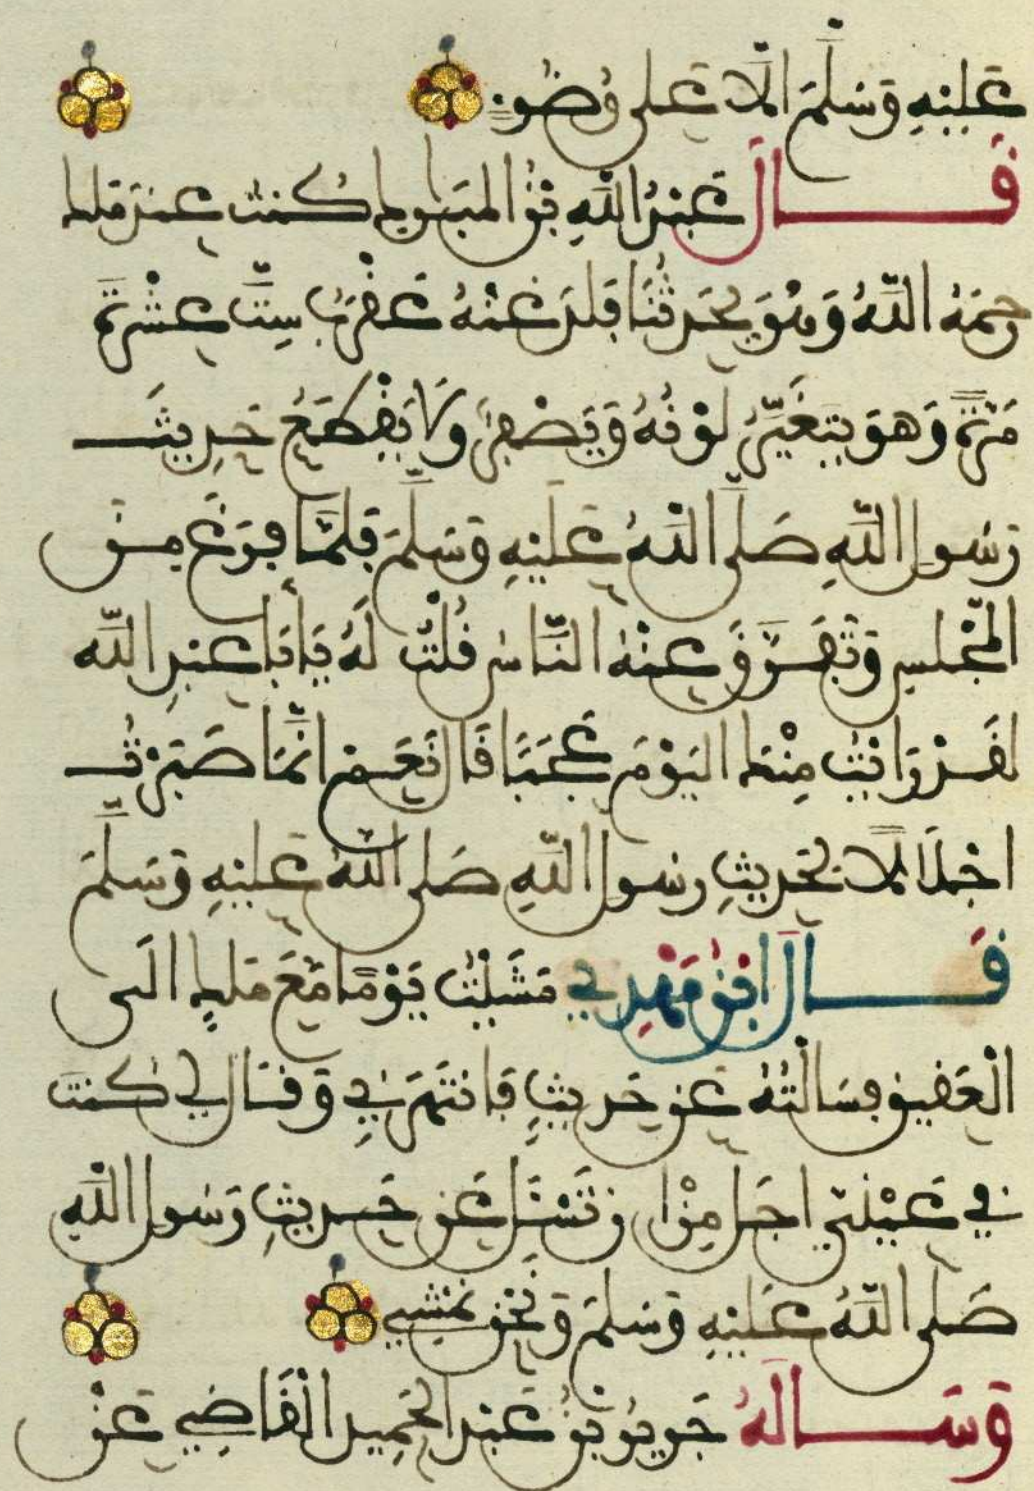 عَلَيْهِ وَسَلَّمَ إِلَّا عَلَى وُضُوءٍ
قَالَ عَبْدُ اللَّهِ بْنُ الْمُبَارَكِ كُنْتُ عِنْدَ مَلِكٍ
رَحِمَهُ اللَّهُ وَهُوَ يُحَدِّثُنَا فَلَدَغَتْهُ عَقْرَبٌ سِتَّ عَشْرَةَ
مَرَّةً وَهُوَ يَتَغَيَّرُ لَوْنُهُ وَيَصْفَرُّ وَلَا يَقْطَعُ حَدِيثَ
رَسُولِ اللَّهِ صَلَّى اللَّهُ عَلَيْهِ وَسَلَّمَ فَلَمَّا فَرَغَ مِنَ
الْمَجْلِسِ وَتَفَرَّقَ عَنْهُ النَّاسُ قُلْتُ لَهُ يَا أَبَا عَبْدِ اللَّهِ
لَقَدْ رَأَيْتُ مِنْكَ الْيَوْمَ عَجَبًا قَالَ نَعَمْ إِنَّمَا صَبَرْتُ
إِجْلَالًا لِحَدِيثِ رَسُولِ اللَّهِ صَلَّى اللَّهُ عَلَيْهِ وَسَلَّمَ
قَالَ ابْنُ مَهْدِيٍّ مَشَيْتُ يَوْمًا مَعَ مَلِكٍ إِلَى
الْعَقِيقِ فَسَأَلْتُهُ عَنْ حَدِيثٍ فَانْتَهَرَنِي وَقَالَ لِي كُنْتَ
فِي عَيْنِي أَجَلَّ مِنْ أَنْ تَسْأَلَ عَنْ حَدِيثِ رَسُولِ اللَّهِ
صَلَّى اللَّهُ عَلَيْهِ وَسَلَّمَ وَنَحْنُ نَمْشِي
وَسَأَلَهُ جَرِيرُ بْنُ عَبْدِ الْحَمِيدِ الْقَاضِي عَنْ